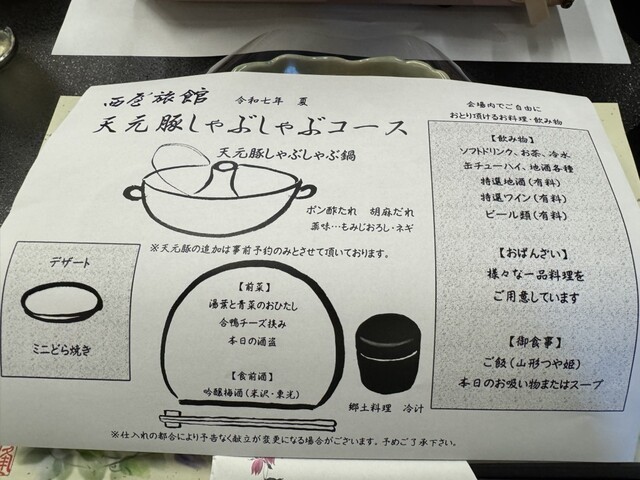 西屋旅館 令和七年 夏
天元豚しゃぶしゃぶコース
天元豚しゃぶしゃぶ鍋
ポン酢たれ 胡麻だれ
薬味…もみじおろし・ネギ
※天元豚の追加は事前予約のみとさせて頂いております。
デザート
ミニどら焼き
【前菜】
湯葉と青菜のおひたし
合鴨チーズ挟み
本日の酒盗
【食前酒】
吟醸梅酒(米沢・東光)
郷土料理 冷汁
会場内でご自由に
おとり頂けるお料理・飲み物
【飲み物】
ソフトドリンク、お茶、冷水
缶チューハイ、地酒各種
特選地酒(有料)
特選ワイン(有料)
ビール類(有料)
【おばんざい】
様々な一品料理を
ご用意しています
【御食事】
ご飯(山形つや姫)
本日のお吸い物またはスープ
※仕入れの都合により予告なく献立が変更になる場合がございます。予めご了承下さい。